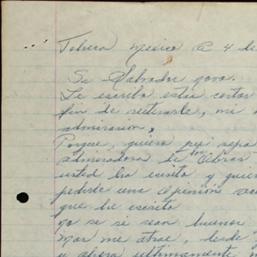 Mexico a 4 de
Sr Salvador
Le escribo estas cortas
fin de
admiracion,
Porque, quiero que sepa
admiradora de obras
usted ha escrito y quiero
pedirle una opinion
que he escrito
no se si son buenos
mas me atrae, desde
y ahora ultimamente